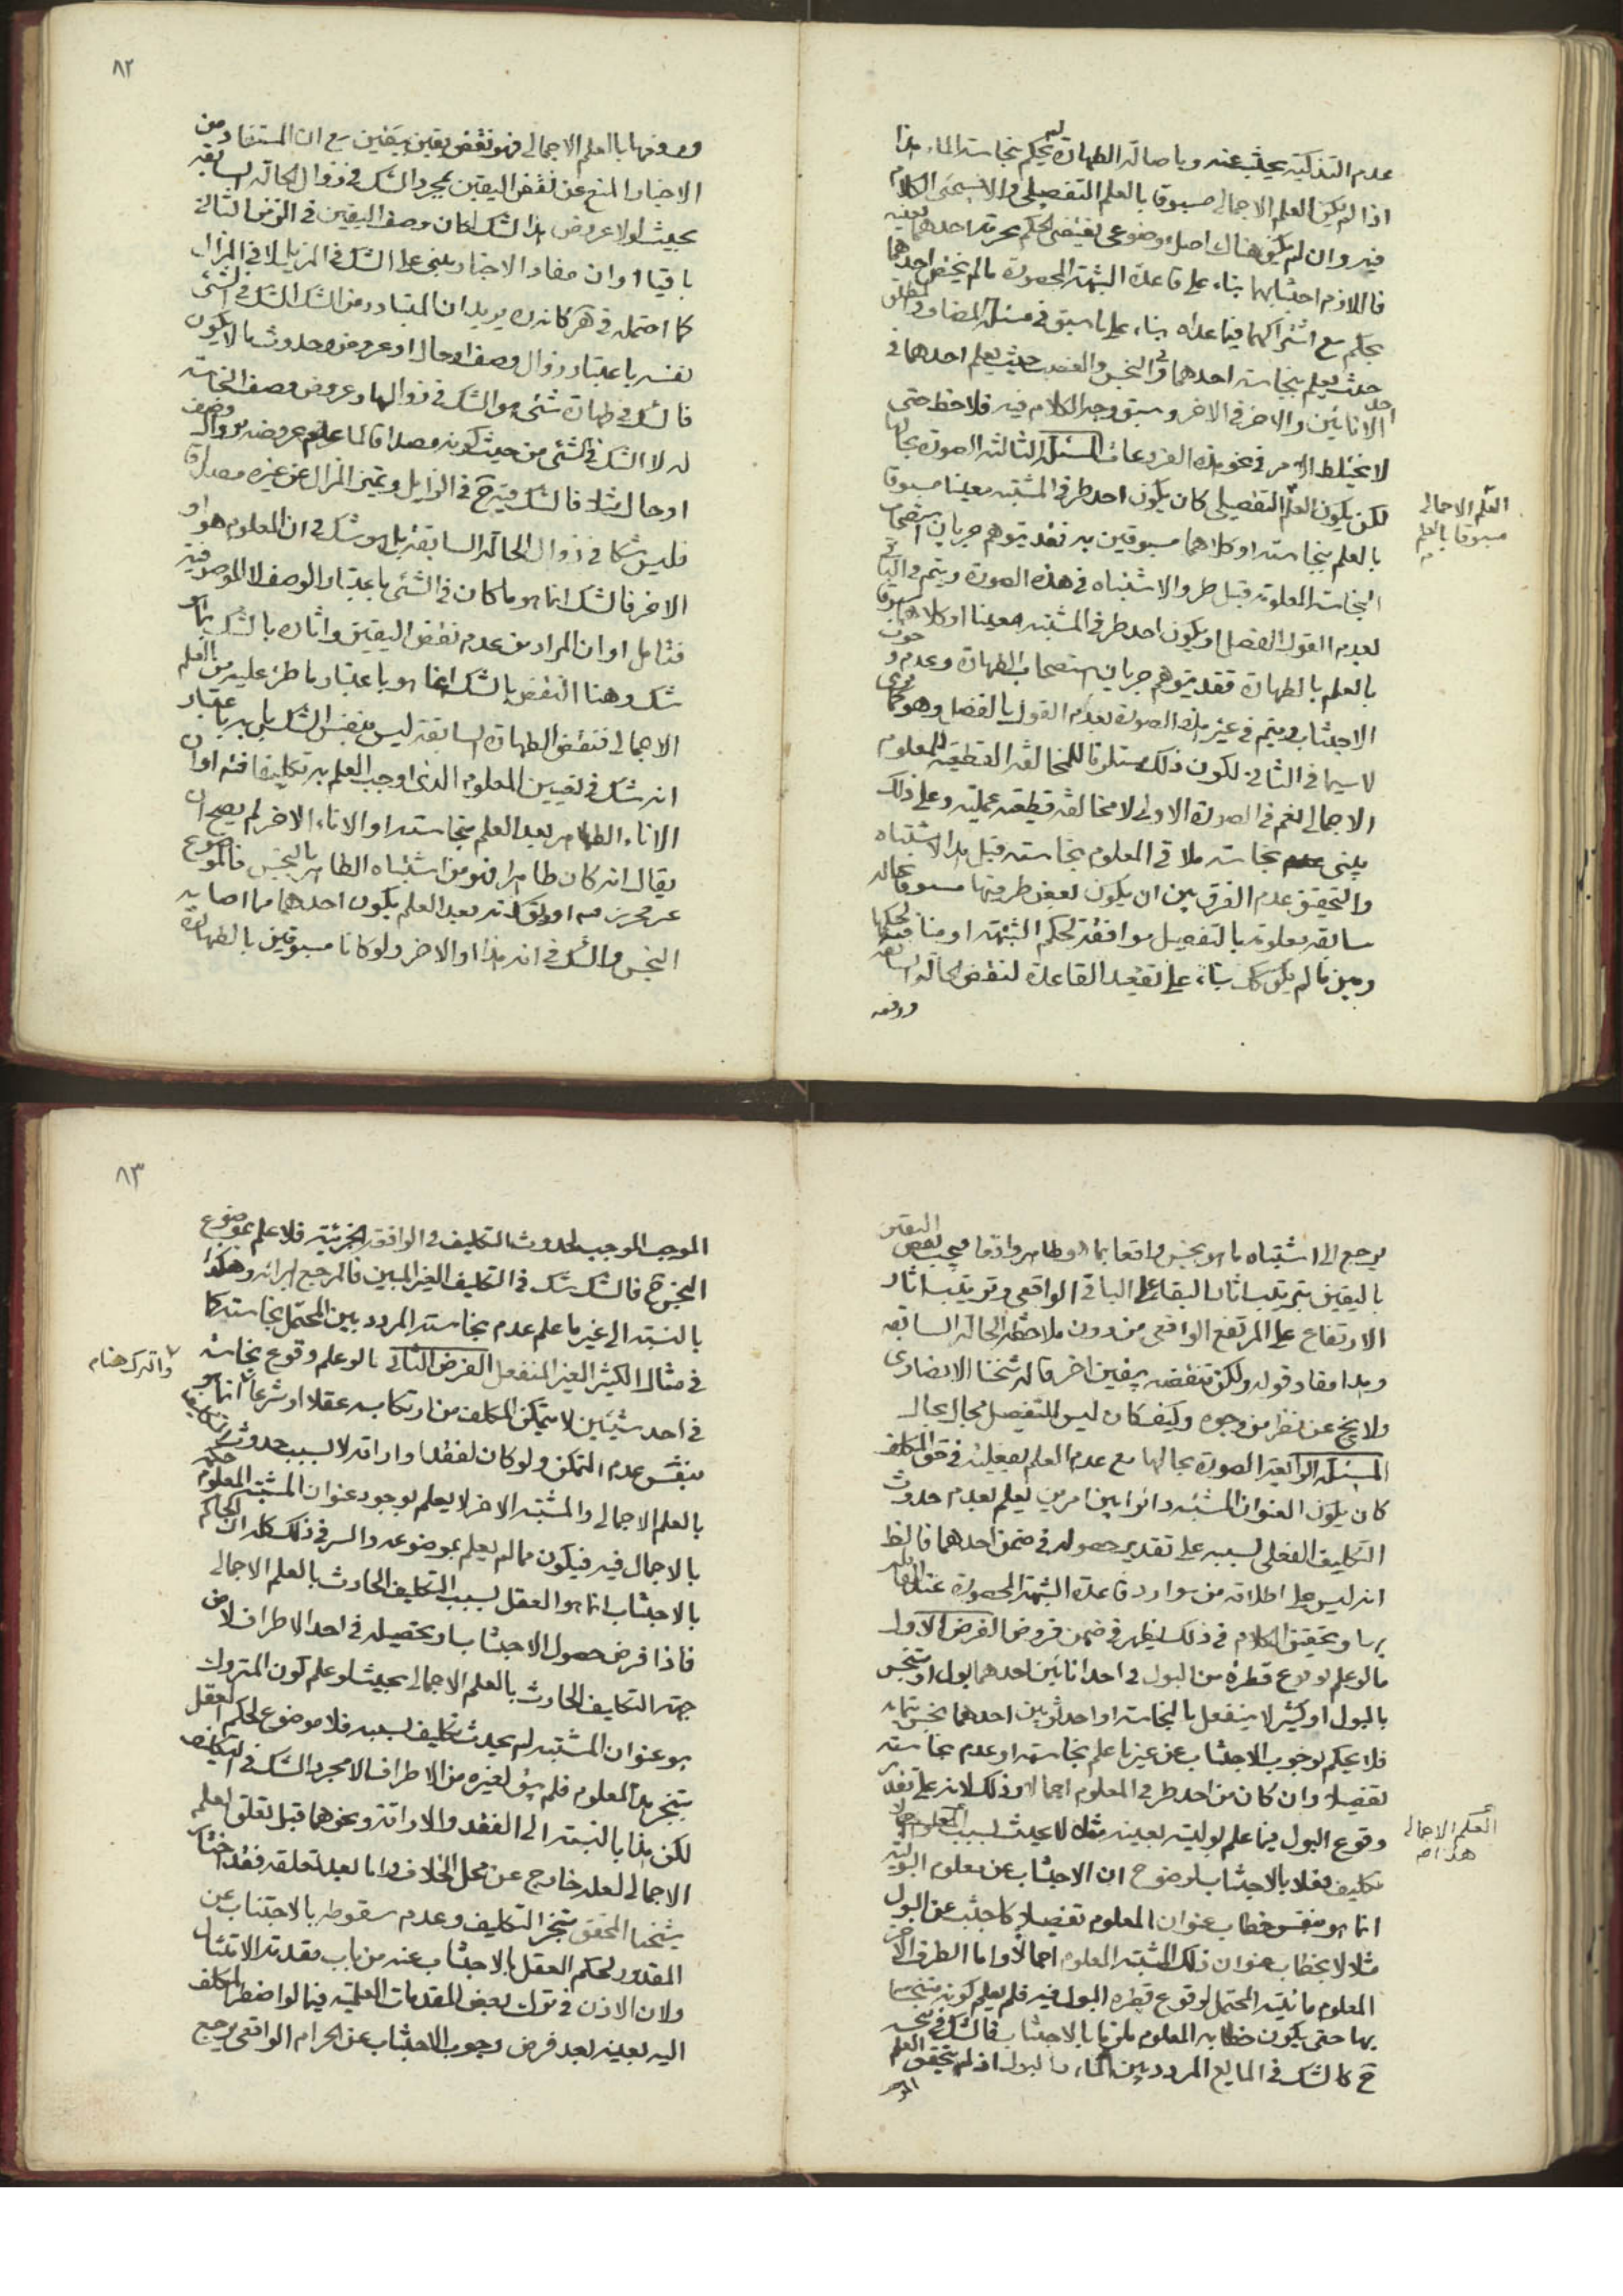 عدم التذكية يجتنب عنه وباصالة الطهارة لم يحكم بنجاسة الماء هذا
اذا لم يكن العلم الاجمالى مسبوقا بالعلم التفصيلى والا سيجئ الكلام
فيه وان لم يكن هناك اصل موضوعى يقتضى الحكم بحرمة احدهما بعينه
فاللازم اجتنابهما بناء على قاعدة الشبهة المحصورة ما لم يختص احدهما
بحكم مع اشتراكهما فيما عداه بناء على ما سبق فى مسئلة المضاف والمطلق
حيث يعلم بنجاسة احدهما وفى النجس والغصب حيث يعلم احدهما فى
احد الانائين والاخر فى الاخر وسبق وجه الكلام فيه فلاحظ حتى
لا يختلط الامر فى نحو هذه الفروعات المسئلة الثالثة الصورة بحالها
لكن يكون العلم التفصيلى كان يكون احد طرفى المشتبه معينا مسبوقا
العلم الاجمالى
مسبوقا بالعلم
بالعلم بنجاسته او كلاهما مسبوقين به فقد يتوهم جريان استصحاب
النجاسة المعلومة قبل طرو الاشتباه فى هذه الصورة ويتم فى الباقى
بعدم القول بالفصل او يكون احد طرفى المشتبه معينا او كلاهما مسبوقا
بالعلم بالطهارة فقد يتوهم جريان استصحاب الطهارة وعدم وجوب
الاجتناب ويتم فى غير هذه الصورة بعدم القول بالفصل وهو كما ترى
لا سيما فى الثانى لكون ذلك مستلزما للمخالفة القطعية للمعلوم
الاجمالى نعم فى الصورة الاولى لا مخالفة قطعية عملية وعلى ذلك
يبنى نجاسة ملاقى المعلوم نجاسته قبل هذا الاشتباه
والتحقيق عدم الفرق بين ان يكون بعض طرفيها مسبوقا بحالة
سابقة معلومة بالتفصيل موافقة لحكم الشبهة او منافية لحكمها
وبين ما لم يكن كك بناء على تقعيد القاعدة لنقض الحالة السابقة
ورفعه
٨٢
ورفعها بالعلم الاجمالى فهو نقض يقين بيقين مع ان المستفاد من
الاخبار المنع عن نقض اليقين بمجرد الشك فى زوال الحالة السابقة
بحيث لولا عروض هذا الشك لكان وصف اليقين فى الزمن الثانى
باقيا او ان مفاد الاخبار مبنى على الشك فى المزيل لا فى المزال
كما احتمله فى هر كانه ره يريد ان المتبادر من الشك الشك فى الشئ
نفسه باعتبار زوال وصف او حال او عروض وحدوث ما لا يكون
فالشك فى طهارة شئ هو الشك فى زوالها وعروض وصف النجاسة
له لا الشك فى الشئ من حيث كونه مصداقا لما علم عروضه وزوال وصف
او حال مثلا فالشك فيه ح فى الزايل وتميز المزال عن غيره مصداقا
فليس شكا فى زوال الحالة السابقة بل هو شك فى ان المعلوم هو او
الاخر فالشك انما هو ما كان فى الشئ باعتبار الوصف لا الموصوفية
فتامل او ان المراد من عدم نقض اليقين واثاره بالشك بما هو
شك وهنا النقض بالشك انما هو باعتبار ما طرء عليه من العلم
الاجمالى فنقض الطهارة السابقة ليس بنفس الشك بل به باعتبار
انه شك فى تعيين المعلوم الذى اوجب العلم به تكليفا فتم او ان
الاناء الطاهر بعد العلم بنجاسته او الاناء الاخر لم يصح ان
يقال انه كان طاهرا فهو من اشتباه الطاهر بالنجس فالموضوع
غير محرز منه او يق انه بعد العلم يكون احدهما مما اصابه
النجس والشك فى انه هذا او الاخر ولو كانا مسبوقين بالطهارة
يرجع الى اشتباه ما هو نجس واقعا بما هو طاهر واقعا فيجب نقض اليقين
باليقين بترتيب اثار البقاء على الباقى الواقعى وترتيب اثار
الارتفاع على المرتفع الواقعى من دون ملاحظة الحالة السابقة
وهذا مفاد قوله ولكن تنقضه بيقين اخر قاله شيخنا الانصارى
ولا يخ عن نظر من وجوه وكيف كان ليس للتفصيل مجال بحال
المسئلة الرابعة الصورة بحالها مع عدم العلم بفعليته فى حق المكلف
كان يكون العنوان المشتبه دائرا بين امرين يعلم بعدم حدوث
التكليف الفعلى بسببه على تقدير حصوله فى ضمن احدهما فالظ
انه ليس على اطلاقه من موارد قاعدة الشبهة المحصورة عند القائل
بها وتحقيق الكلام فى ذلك يظهر فى ضمن فروض الفرض الاول
ما لو علم بوقوع قطرة من البول فى احد انائين احدهما بول او متنجس
بالبول او كثير لا ينفعل بالنجاسة او احد ثوبين احدهما نجس بتمامه
فلا يحكم بوجوب الاجتناب عن غير ما علم نجاسته او عدم نجاسته
تفصيلا وان كان من احد طرفى المعلوم اجمالا وذلك لانه على تقدير
وقوع البول فيما علم بوليته بعينه مثلا لا يحدث بسبب المعلوم اجمالا
العلم الاجمالى
هذا م
تكليف فعلا بالاجتناب لوضوح ان الاجتناب عن معلوم البولية
انما هو بنفس خطاب عنوان المعلوم تفصيلا كاجتنب عن البول
مثلا لا بخطاب عنوان ذلك المشتبه المعلوم اجمالا واما الطرف الاخر
المعلوم مائيته المحتمل لوقوع قطرة البول فيه فلم يعلم كونه متنجسا
بها حتى يكون خطابه المعلوم ملزما بالاجتناب فالشك فى نجسه
ح كالشك فى المايع المردد بين الماء والبول اذ لم يتحقق العلم
٨٣
الموجب الموجب لحدوث التكليف فى الواقعة الجزئية فلا علم بموضوع
النجس ح فالشك شك فى التكليف الغير المبين فالمرجع البرائة وهكذا
بالنسبة الى غير ما علم عدم نجاسته المردد بين المحتمل نجاسته كما
فى مثال الكثير الغير المنفعل الفرض الثانى ما لو علم وقوع نجاسة
فى احد شيئين لا يتمكن المكلف من ارتكاب عقلا او شرعا انما هو
بنفس عدم التمكن ولو كان لفقد او اراقة لا بسبب حدوث تكليف
بالعلم الاجمالى والمشتبه الاخر لا يعلم بوجود عنوان المشتبه المعلوم حكمه
بالاجمال فيه فيكون مما لم يعلم بموضوعه والسر فى ذلك كله ان الحاكم
بالاجتناب انما هو العقل بسبب التكليف الحادث بالعلم الاجمالى
فاذا فرض حصول الاجتناب او تحصيله فى احد الاطراف لا من
جهة التكليف الحادث بالعلم الاجمالى بحيث لو علم كون المتروك
هو عنوان المشتبه لم يحدث تكليف بسببه فلا موضوع لحكم العقل
بتنجز هذا المعلوم فلم يبق لغيره من الاطراف الا مجرد الشك فى التكليف
لكن هذا بالنسبة الى الفقد والاراقة ونحوهما قبل تعلق العلم
الاجمالى لعله خارج عن محل الخلاف واما بعد تعلقه فقد اختار
شيخنا المحقق تنجز التكليف وعدم سقوطه بالاجتناب عن
المقدور لحكم العقل بالاجتناب عنه من باب مقدمة الامتثال
ولان الاذن فى ترك بعض المقدمات العلمية فيما لو اضطر المكلف
اليه بعينه بعد فرض وجوب الاجتناب عن الحرام الواقعى يرجع